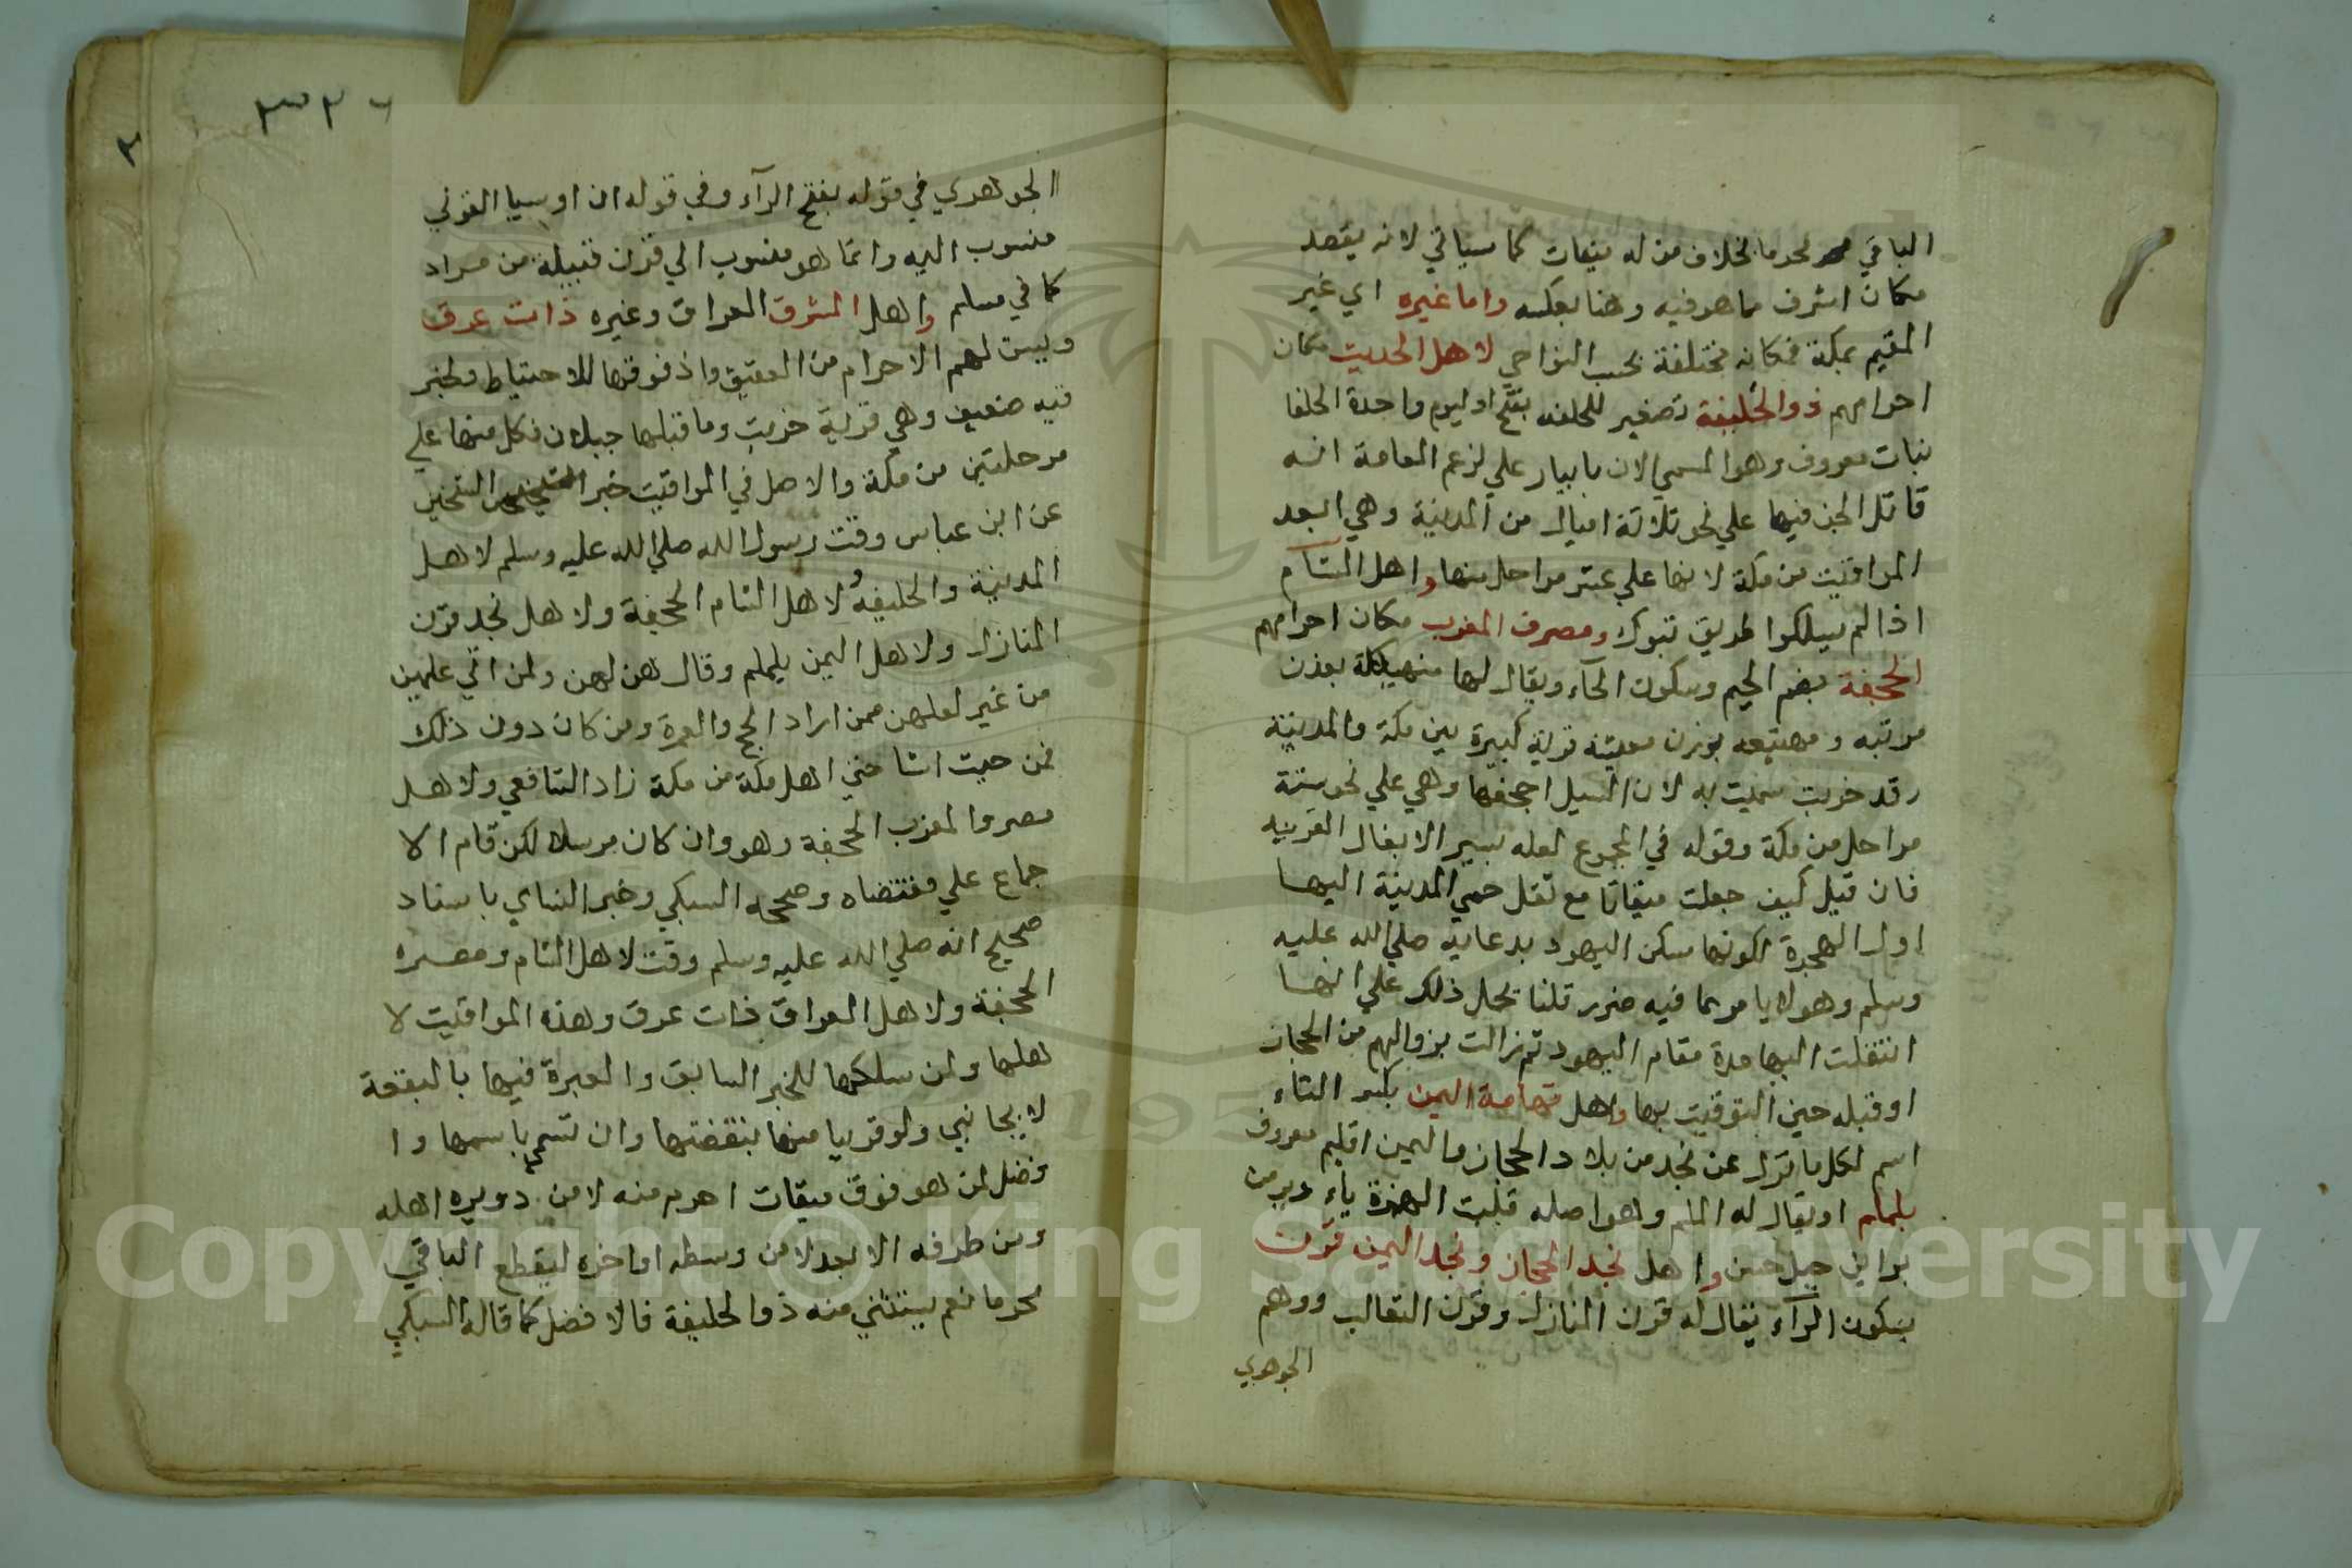 الباقي محرما بخلاف من له ميقات كما سياتي لانه يقصد
مكان اشرف مما هو فيه وهنا بعكسه واما غيره اي غير
المقيم بمكة فمكانه مختلفة بحسب النواحي لاهل الحديث مكان
احرامهم ذوالحليفة تصغير للحلفه بفتح اوليهم واحدة الحلفا
نبات معروف وهو المسمي الان بابيار علي لزعم العامة انه
قاتل الجن فيها علي نحو ثلاثة اميال من المدينة وهي ابعد
المواقيت من مكة لانها علي عشر مراحل منها واهل الشآم
اذا لم يسلكوا طريق تبوك ومصر والمغرب مكان احرامهم
الجحفة بضم الجيم وسكون الحآء ويقال لها مهيعة بوزن
مرتبه ومهيعه بوزن معيشه قرية كبيرة بين مكة والمدينة
وقد خربت سميت به لان السيل اجحفها وهي علي نحو ستة
مراحل من مكة وقوله في المجموع لعله بسير الابغال القريبه
فان قيل كيف جعلت ميقاتا مع نقل حمي المدينة اليها
اول الهجرة لكونها مسكن اليهود بدعايه صلي الله عليه
وسلم وهو لا يامر بما فيه ضرر قلنا يحمل ذلك علي انها
انتقلت اليها مدة مقام اليهود ثم زالت بزوالهم من الحجاز
او قبله حين التوقيت بها ولاهل تهامة اليمن بكسر التاء
اسم لكل ما نزل عن نجد من بلاد الحجاز واليمن اقليم معروف
يلملم او يقال له الملم وهو اصله قلبت الهمزة ياء ويرمرم
براين جبل حسن واهل نجد الحجاز ونجد اليمن قرن
بسكون الرآء يقال له قرن المنازل وقرن الثعالب ووهم
الجوهري
٣٣٢٦
٢
الجوهري في قوله بفتح الرآء وفي قوله ان اويسا القرني
منسوب اليه وانما هو منسوب الي قرن قبيلة من مراد
كما في مسلم واهل المشرق العراق وغيره ذات عرق
ويسن لهم الاحرام من العقيق واذ فوقها للاحتياط ولخبر
فيه ضعيف وهي قرية خربت وما قبلها جبلان فكل منها علي
مرحلتين من مكة والاصل في المواقيت خبر الشيخين
عن ابن عباس وقت رسول الله صلي الله عليه وسلم لاهل
المدينة ذا الحليفة ولاهل الشام الجحفة ولاهل نجد قرن
المنازل ولاهل اليمن يلملم وقال هن لهن ولمن اتي عليهن
من غير اهلهن ممن اراد الحج والعمرة ومن كان دون ذلك
فمن حيث انشا حتي اهل مكة من مكة زاد الشافعي ولاهل
مصر والمغرب الجحفة وهو وان كان مرسلا لكن قام الا
جماع علي مقتضاه وصححه السبكي وخبر النساي باسناد
صحيح انه صلي الله عليه وسلم وقت لاهل الشام ومصره
الجحفة ولاهل العراق ذات عرق وهذه المواقيت لا
هلها ولمن سلكها للخبر السابق والعبرة فيها بالبقعة
لا بجانبي ولو قريبا منها بنقضتها وان تسمي باسمها وا
فضل لمن هو فوق ميقات احرم منه لا من دويره اهله
ومن طرفه الابعد لا من وسطه او اخره ليقطع الباقي
محرما نعم يستثني منه ذو الحليفة فالافضل كما قاله السبكي
Copyright © King Saud University